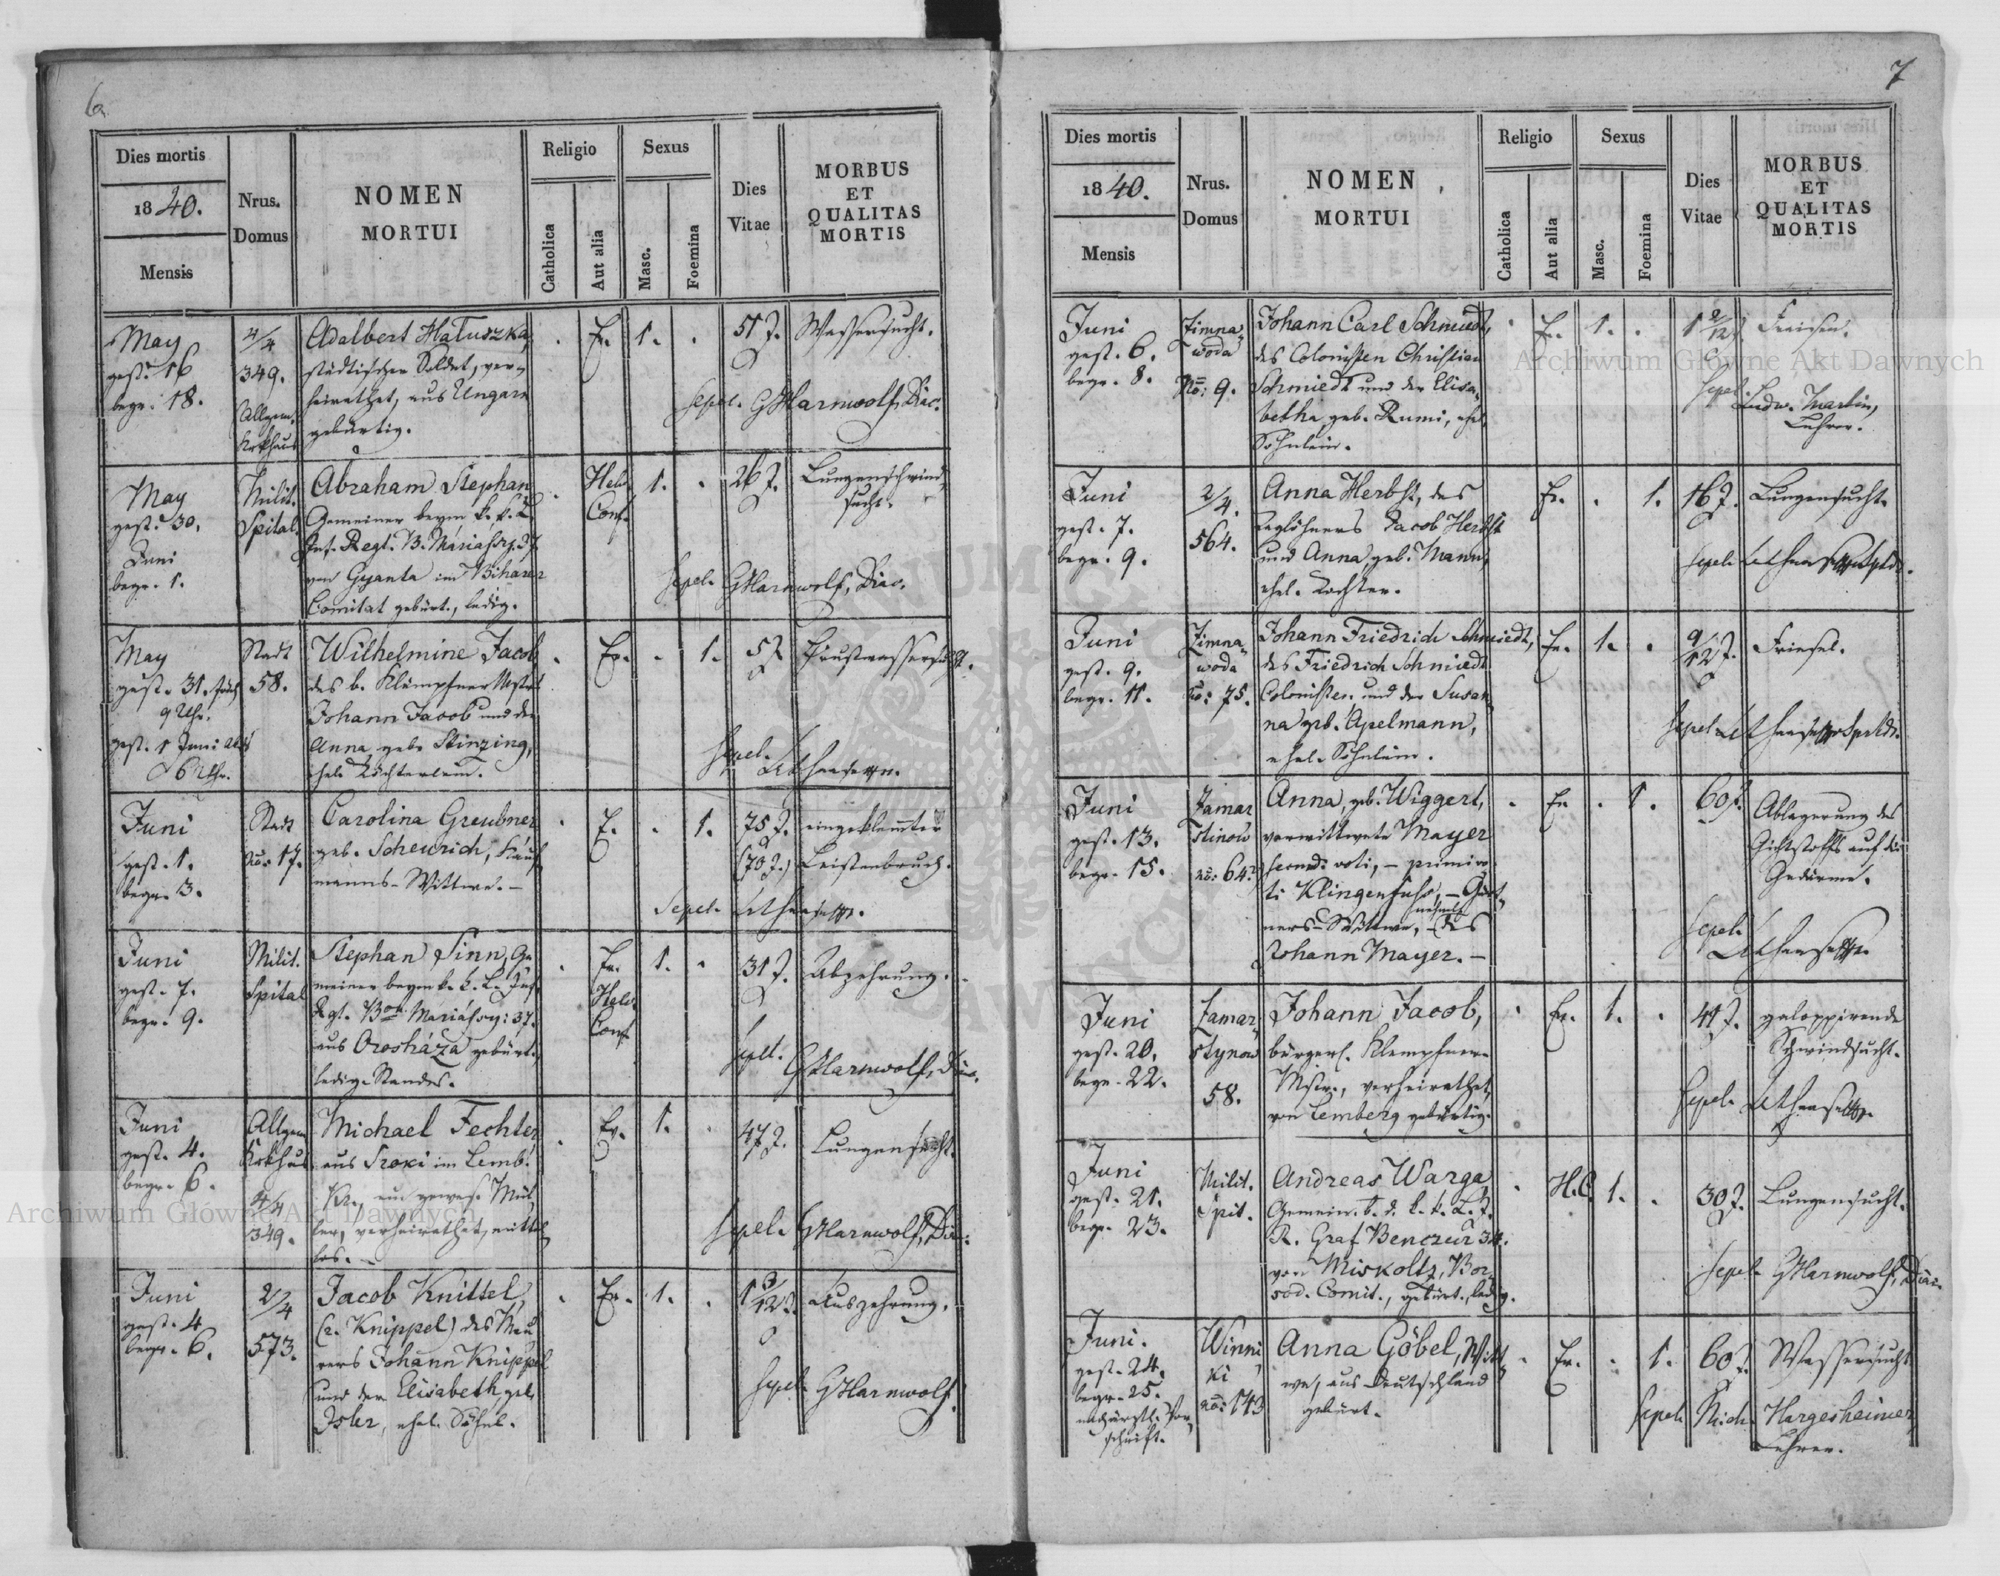 6
Dies mortis
1840.
Mensis
Nrus.
Domus
NOMEN
MORTUI
Religio
Catholica
Aut alia
Sexus
Masc.
Foemina
Dies
Vitae
MORBUS
ET
QUALITAS
MORTIS
May
gest. 16
begr. 18.
4/4
349.
Allgem.
Krkhaus
Adalbert Hatuszka,
städtischer Soldat, ver-
heirathet, aus Ungarn
gebürtig.
Ev.
1.
51 J.
Wassersucht.
sepel. GHarnwolf, Diac.
May
gest. 30.
Juni
begr. 1.
Milit.
Spital
Abraham Stephan
Gemeiner beym k. k. L.
Inf. Regt. B. Mariassy. 37
von Gyanta im Biharer
Comitat gebürt., ledig.
Helv.
Conf.
1.
26 J.
Lungenschwind
sucht.
sepel. GHarnwolf, Diac.
May
gest. 31. früh
9 Uhr.
gest. 1 Juni
6 Uhr.
Stadt
58.
Wilhelmine Jacob
des b. Klämpfner Mstrs
Johann Jacob und der
Anna gebr Stinzing,
ehel. Töchterlein.
Ev.
1.
5 J.
Brustwassersucht.
sepel.
Juni
gest. 1.
begr. 3.
Stadt
no: 17.
Carolina Greubner
geb. Scheurich, Kauf
manns-Wittwe. —
Ev.
1.
75 J.
(70 J.)
eingeklemmter
Leistenbruch.
Sepel.
Juni
gest. 7.
begr. 9.
Milit.
Spital
Stephan Sinn, Ge
meiner beym k. k. L. Inf.
Rgt. Bon Mariássy: 37.
aus Orosháza gebürt.,
ledig. Standes.
Ev.
Helv.
Conf
1.
31 J.
Abzehrung.
sepel. GHarnwolf, Diac.
Juni
gest. 4.
begr. 6.
Allgem
Krkhus
4/4
349.
Michael Fechter,
aus im Lemb.
Kr., ein gewes. Mül
ler, verheirathet, mittel
los. —
Ev.
1.
47 J.
Lungensucht.
sepel. GHarnwolf, Diac.
Juni
gest. 4
begr. 6.
2/4
573.
Jacob Knittel,
(r. Knippel) des Mau
rers Johann Knippel
und der Elisabeth geb.
Isler, ehel. Söhnl.
Ev.
1.
1 3/12 J.
Auszehrung.
sepel. GHarnwolf.
7
Dies mortis
1840.
Mensis
Nrus.
Domus
NOMEN
MORTUI
Religio
Catholica
Aut alia
Sexus
Masc.
Foemina
Dies
Vitae
MORBUS
ET
QUALITAS
MORTIS
Juni
gest. 6.
begr. 8.
Zimna
woda
No: 9.
Johann Carl Schmiedt,
des Colonisten Christian
Schmiedt und der Elisa-
betha, geb. Rumi, ehel.
Söhnlein.
Ev.
1.
1 2/12 J.
Friesen.
sepel.
Ludw. Martin,
Lehrer.
Juni
gest. 7.
begr. 9.
2/4.
564.
Anna Herbst, des
Taglöhners Jacob Herbst
und Anna, geb. Mann,
ehel. Tochter.
Ev.
1.
16 J.
Lungensucht.
sepel.
Juni
gest. 9.
begr. 11.
Zimna
woda
no: 75.
Johann Friedrich Schmiedt,
des Friedrich Schmiedt
Colonisten und der Susan
na geb. Apelmann,
ehel. Söhnlein.
Ev.
1.
9/12 J.
Friesel.
sepel
Juni
gest. 13.
begr. 15.
Zamar
stinow
no: 64.
Anna, geb. Wiggert,
verwittwete Mayer
secundi voti, — primi vo
ti Klingenfuhs, — Gärt-
ners-Wittwe, nähml. des
Johann Mayer. —
Ev.
1.
60 J.
Ablagerung des
Gichtstoffs auf die
Gedärme.
sepel.
Juni
gest. 20.
begr. 22.
Zamar
stynow
58.
Johann Jacob,
bürgerl. Klempfner-
Mstr., verheirathet,
von Lemberg gebürtig.
Ev.
1.
41 J.
galoppirende
Schwindsucht.
sepel.
Juni
gest. 21.
begr. 23.
Milit.
Spit.
Andreas Warga
Gemein. b. d. k. k. L. I.
R. Graf Benczur 34.
von Miskoltz, Bor
sod. Comit., gebürt., ledig.
H.C.
1.
30 J.
Lungensucht.
sepel. GHarnwolf, Diac.
Juni.
gest. 24.
begr. 25.
nach ärztl. Vor
schrift.
Winni
ki
no: 143
Anna Göbel, Witt
we, aus Deutschland
gebürt.
Ev.
1.
60 J.
Wassersucht
sepel. Mich. Hargesheimer,
Lehrer.
Archiwum Główne Akt Dawnych
Archiwum Główne Akt Dawnych